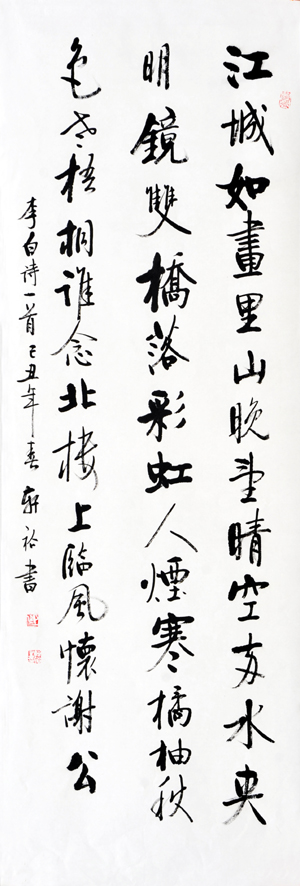 江城如畫里山晚望晴空兩水夾
明鏡雙橋落彩虹人煙寒橘柚秋
色老梧桐誰念北樓上臨風懷謝公
李白诗一首己丑年春軒書